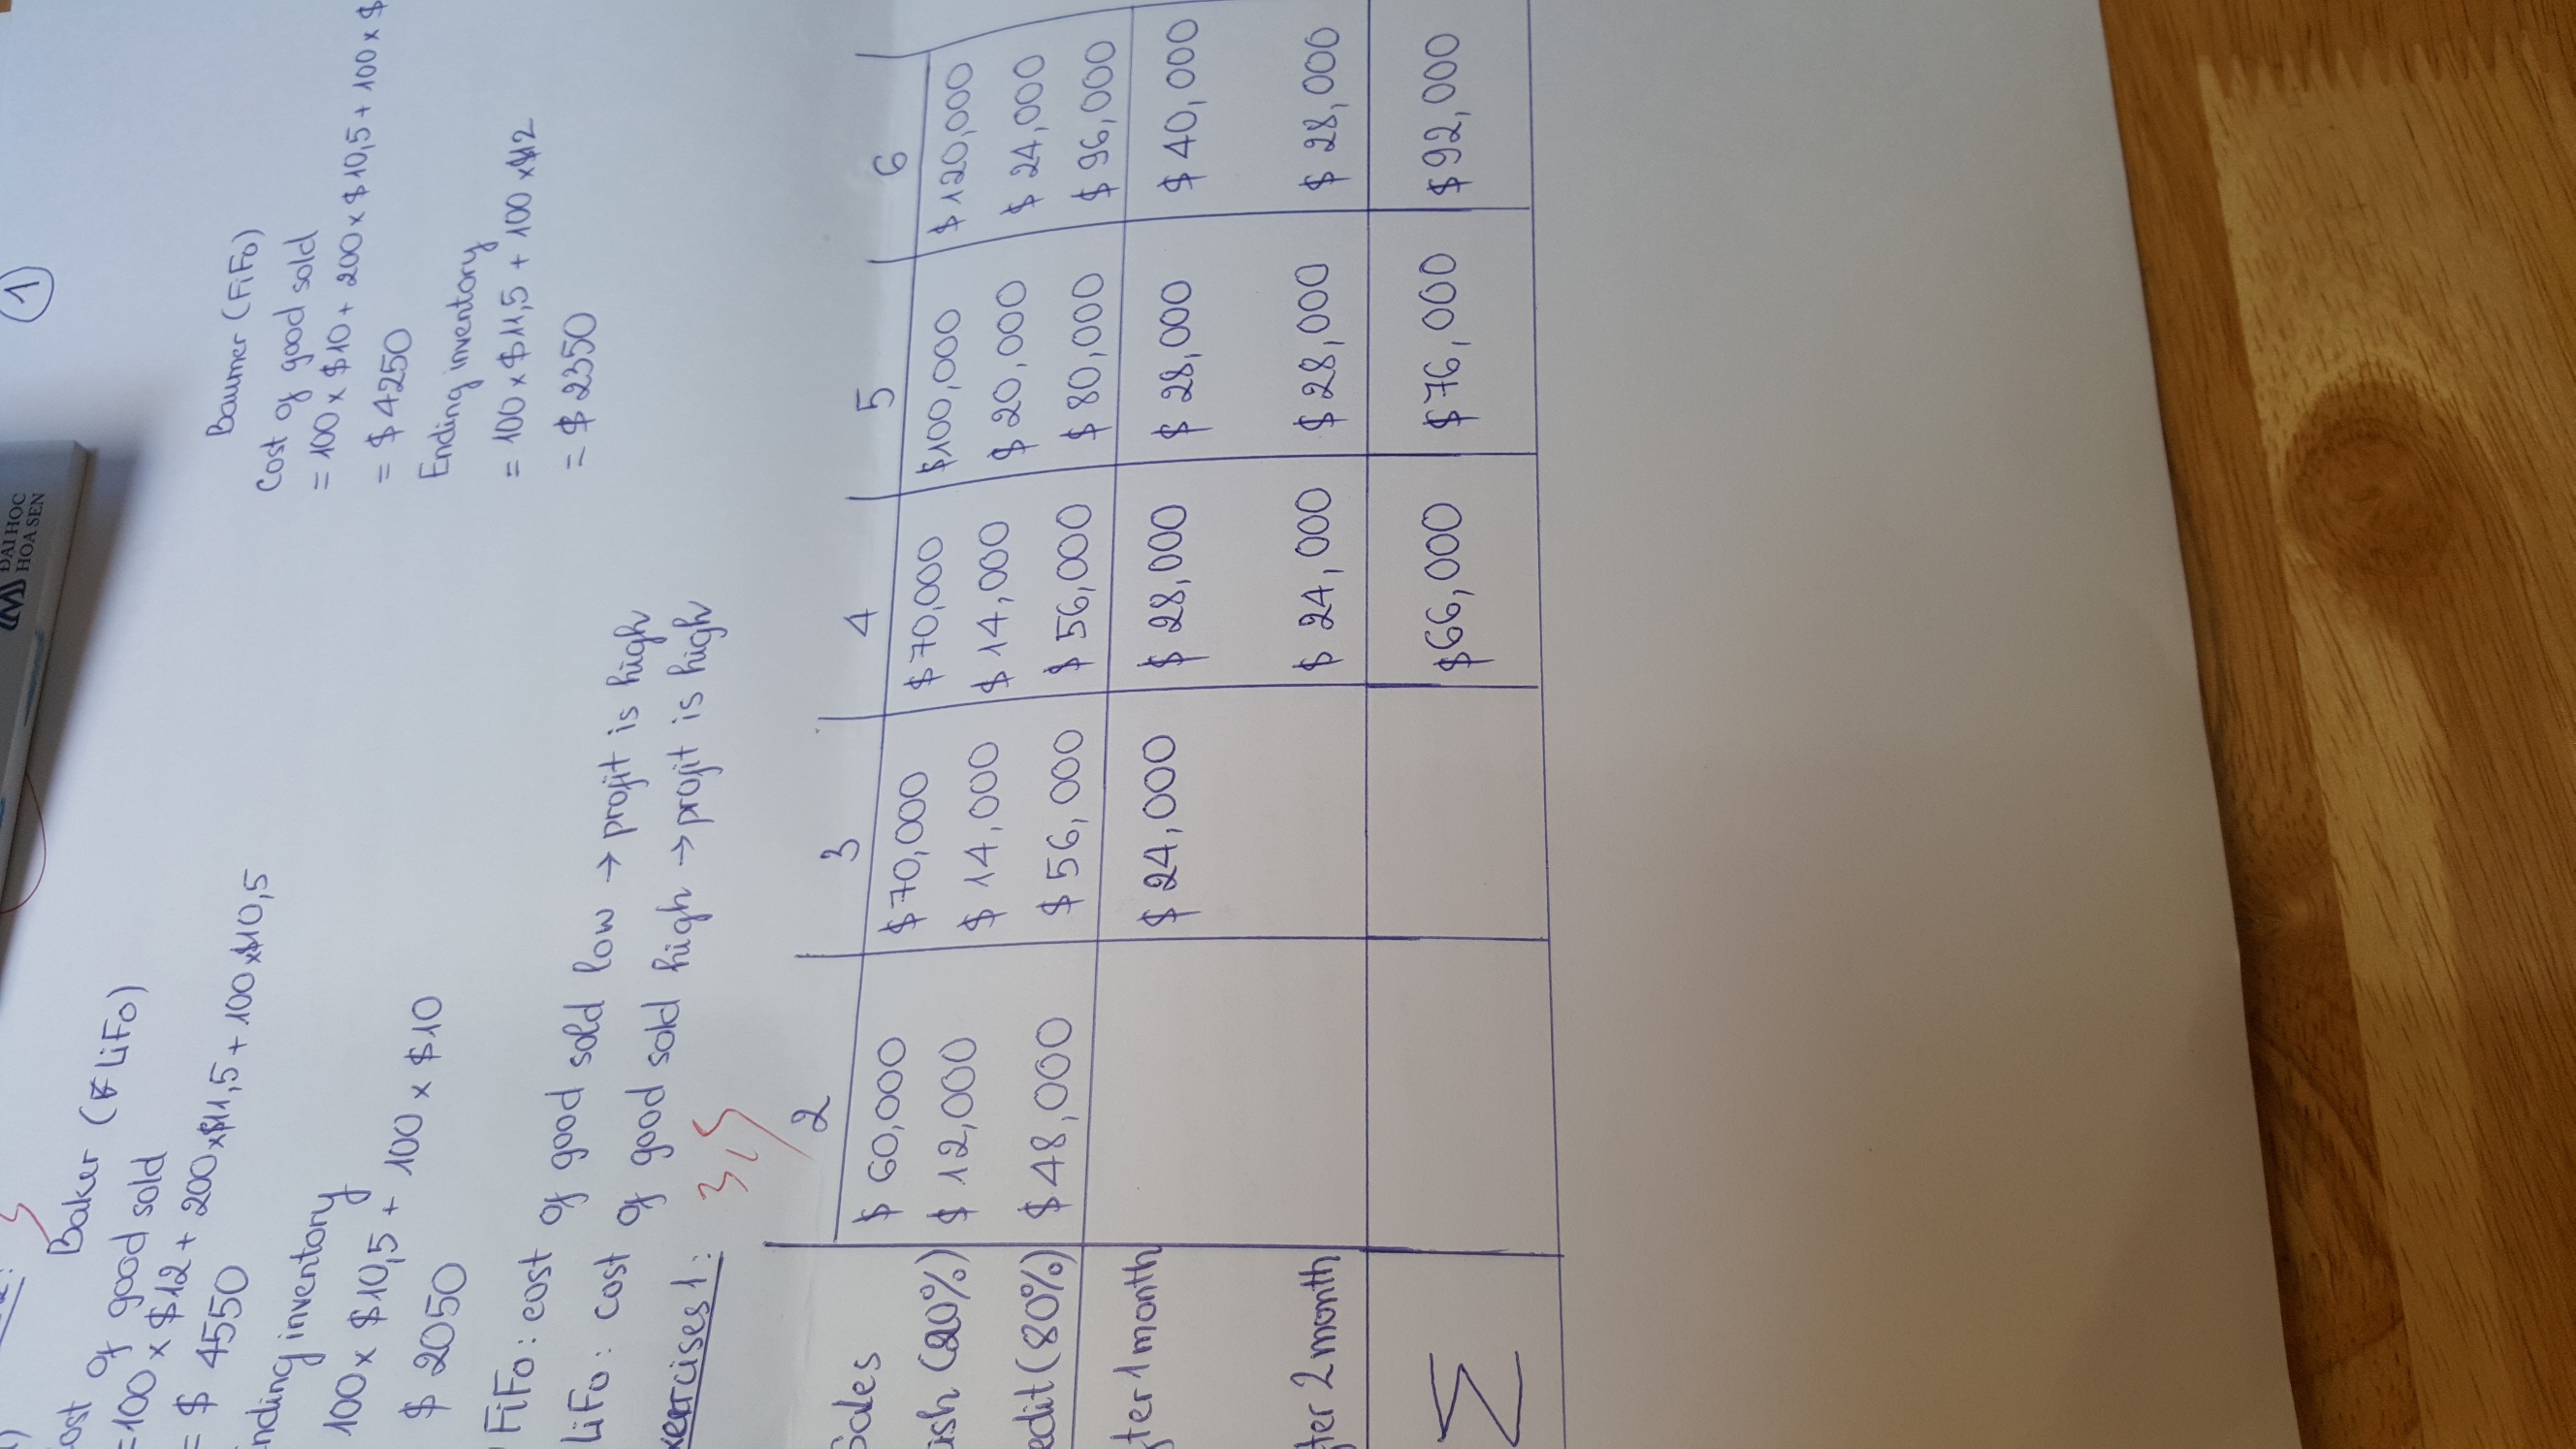 ĐẠI HỌC
HOA SEN
1
Baker (LiFo)
ost of good sold
=100 x $12 + 200x$11,5 + 100x$10,5
= $ 4550
nding inventory
100 x $10,5 + 100 x $10
$ 2050
Baumer (FiFo)
Cost of good sold
= 100 x $10 + 200 x $10,5 + 100 x $
= $ 4250
Ending inventory
= 100 x $11,5 + 100 x $12
= $ 2350
FiFo : cost of good sold low → profit is high
LiFo : cost of good sold high → profit is high
xercises 1 :
2 3 4 5 6
Sales $ 60,000 $70,000 $70,000 $100,000 $120,000
ash (20%) $ 12,000 $ 14,000 $ 14,000 $ 20,000 $ 24,000
edit (80%) $48,000 $ 56,000 $ 56,000 $ 80,000 $ 96,000
ter 1 month $ 24,000 $ 28,000 $ 28,000 $ 40,000
ter 2 month $ 24,000 $ 28,000 $ 28,000
Σ $66,000 $76,000 $92,000